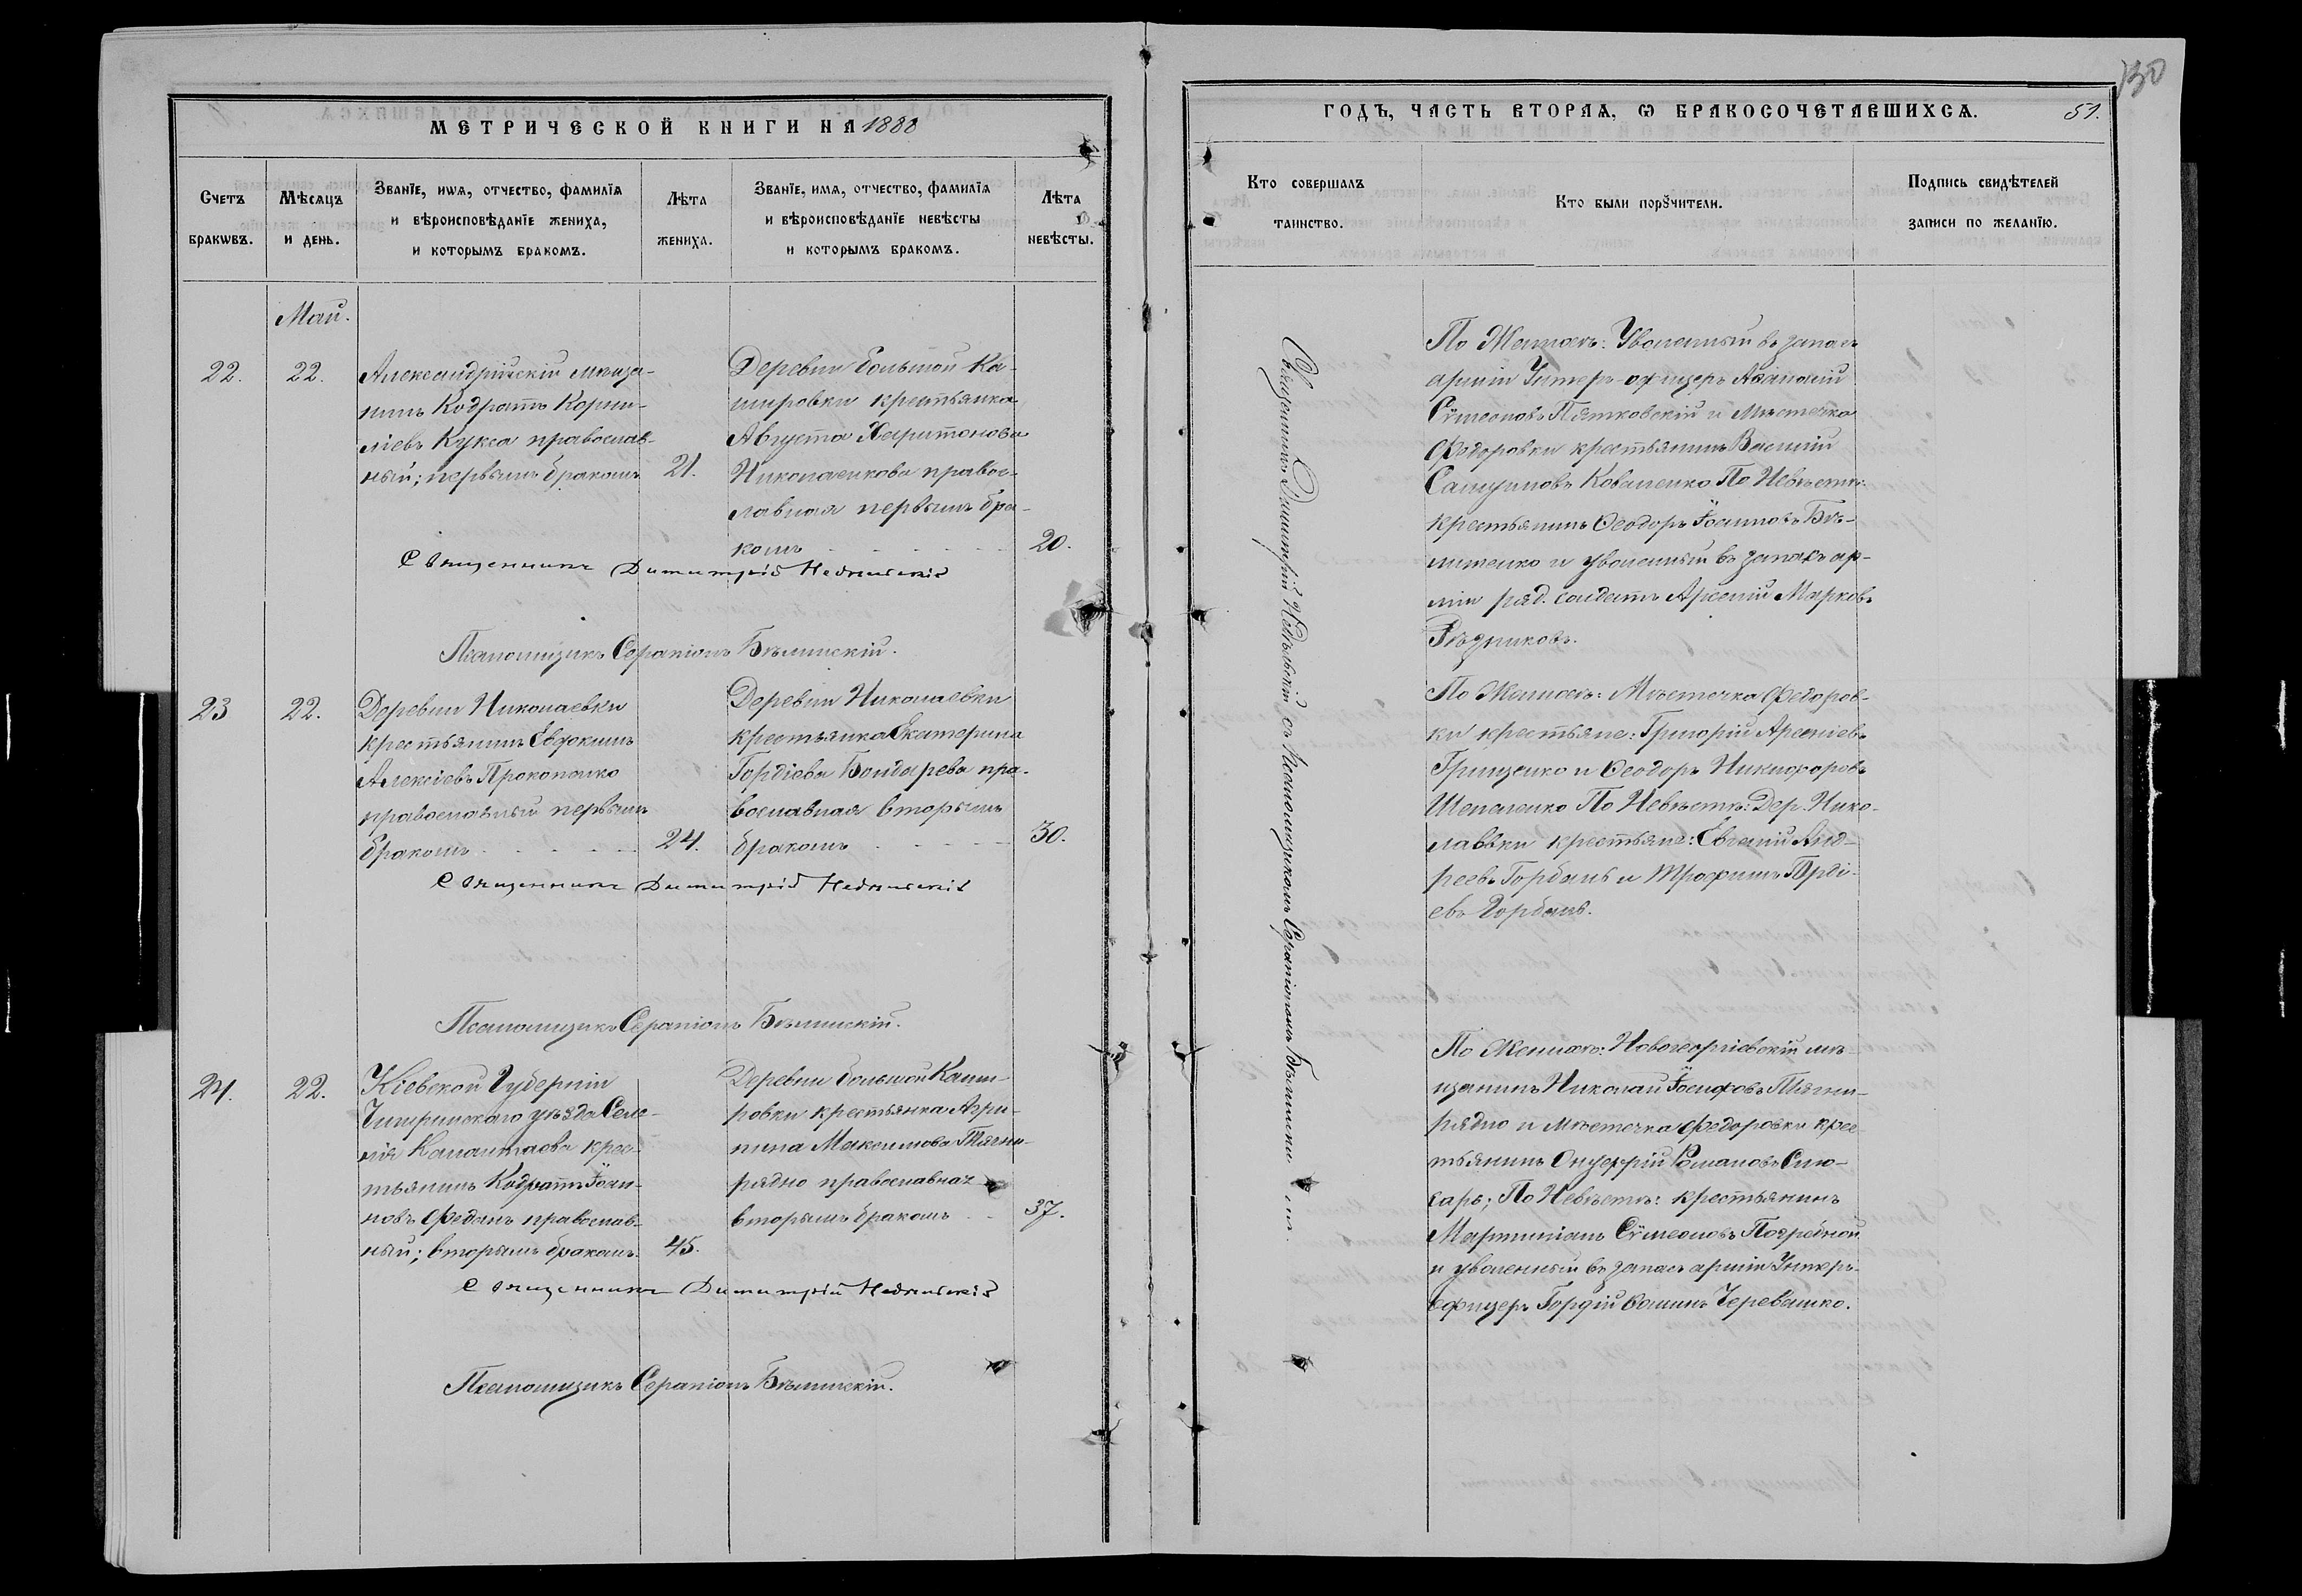 130
МЕТРИЧЕСКОЙ КНИГИ НА 1888
ГОДЪ, ЧАСТЬ ВТОРАѦ, Ѡ БРАКОСОЧЕТАВШИХСѦ.
51.
Счетъ бракѡвъ.
Мѣсѧцъ и день.
Званїе, имѧ, отчество, фамилїѧ
и вѣроисповѣданїе жениха,
и которымъ бракомъ.
Лѣта жениха.
Званїе, имѧ, отчество, фамилїѧ
и вѣроисповѣданїе невѣсты
и которымъ бракомъ.
Лѣта невѣсты.
Кто совершалъ
таинство.
Кто были порꙋчители.
Подпись свидѣтелей
записи по желанїю.
Май.
22.
22.
Александрійскій мѣща-
нинъ Кодратъ Корни-
ліевъ Кукса православ-
ный; первымъ бракомъ
21.
Деревни большой Ка-
шировки крестьянка
Августа Харитонова
Николаенкова правос-
лавная первымъ бра-
комъ
20.
Священникъ Димитрій Недѣльскій
Псаломщикъ Серапіонъ Бѣлинскій.
23
22.
Деревни Николаевки
крестьянинъ Евфкимъ
Алексіевъ Прокопенко
православный первымъ
бракомъ
24.
Деревни Николаевки
крестьянка Екатерина
Гордіева Бондарева пра-
вославная вторымъ
бракомъ
30.
Священникъ Димитрій Недѣльскій
Псаломщикъ Серапіонъ Бѣлинскій.
24.
22.
Кіевской Губерніи
Чигиринскаго уѣзда Селе-
нія Калантаева крес-
тьянинъ Кодратъ Іоан-
новъ Феданъ православ-
ный; вторымъ бракомъ.
45.
Деревни большой Каши-
ровки крестьянка Агри-
пина Максимова Тягни-
рядно православная
вторымъ бракомъ
37.
Священникъ Димитрій Недѣльскій
Псаломщикъ Серапіонъ Бѣлинскій.
Священникъ Димитрій Недѣльскій съ Псаломщикомъ Серапіономъ Бѣлинскимъ.
По Женихѣ: Уволенный въ запасъ
арміи Унтеръ-офицеръ Аѳанасій
Сѵмеоновъ Пятковскій и Мѣстечка
Федоровки крестьянинъ Василій
Самуиловъ Коваленко По Невѣстѣ:
крестьянинъ Ѳеодоръ Іоанновъ Бѣ-
лименко и уволенный въ запасъ ар-
міи ряд. солдатъ Арсеній Марковъ
Рѣзниковъ.
По Женихѣ: Мѣстечка Федоров-
ки крестьяне: Григорій Арсеніевъ
Грищенко и Ѳеодоръ Никифоровъ
Шепеленко По Невѣстѣ: Дер. Нико-
лаевки крестьяне: Евгеній Анд-
реевъ Горбань и Трофимъ Горді-
евъ Горбань.
По Женихѣ: Новогеоргіевскій мѣ-
щанинъ Николай Іосифовъ Тягни-
рядно и мѣстечка Федоровки крес-
тьянинъ Онуфрій Романовъ Слю-
сарь; По Невѣстѣ: крестьянинъ
Мартиніанъ Сѵмеоновъ Погребной
и уволенный въ запасъ арміи Унтеръ-
офицеръ Гордій Саминъ Черевашко.